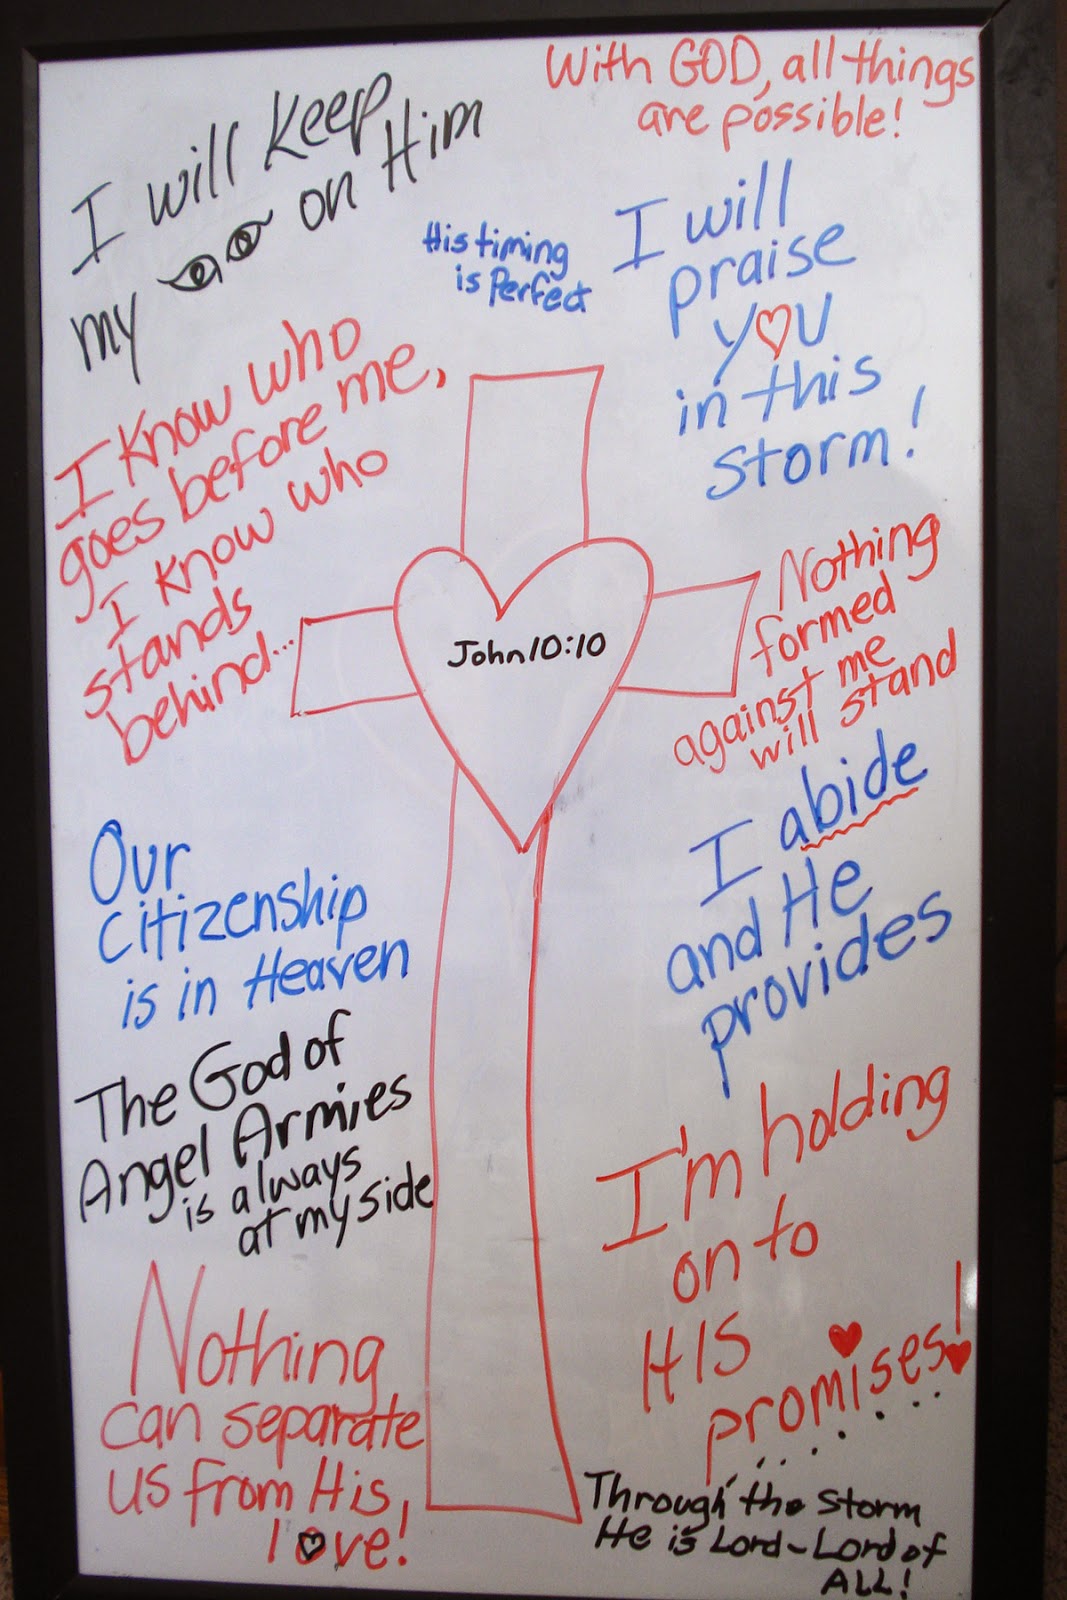 With GOD, all things
are possible!
I will keep
my on Him
His timing
is Perfect
I will
praise
you
in this
storm!
I know who
goes before me,
I know who
stands
behind...
John 10:10
Nothing
formed
against me
will stand
I abide
and He
provides
Our
citizenship
is in Heaven
The God of
Angel Armies
is always
at my side
I'm holding
on to
HIS
promises!
Nothing
can separate
us from His,
love!
Through the storm
He is Lord~Lord of
ALL!